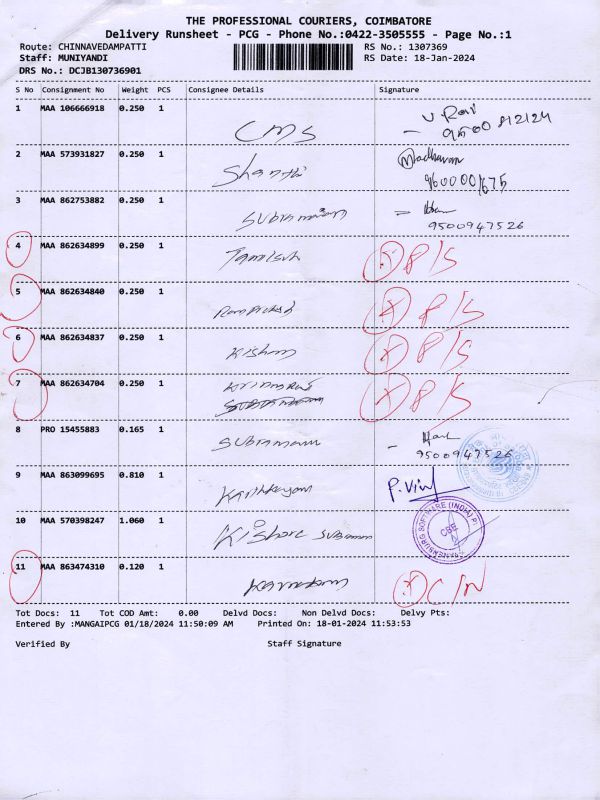 THE PROFESSIONAL COURIERS, COIMBATORE
Delivery Runsheet - PCG - Phone No.:0422-3505555 - Page No.:1
Route: CHINNAVEDAMPATTI RS No.: 1307369
Staff: MUNIYANDI RS Date: 18-Jan-2024
DRS No.: DCJB130736901
S No Consignment No Weight PCS Consignee Details Signature
1 MAA 106666918 0.250 1 CMS
2 MAA 573931827 0.250 1 Shanthi Madhavan
3 MAA 862753882 0.250 1 Subramaniam
9500947526
4 MAA 862634899 0.250 1 P/S
5 MAA 862634840 0.250 1 P/S
6 MAA 862634837 0.250 1 Kishan P/S
7 MAA 862634704 0.250 1 P/S
8 PRO 15455883 0.165 1
9500947526
9 MAA 863099695 0.810 1 P.Vinf
10 MAA 570398247 1.060 1 Kishore
11 MAA 863474310 0.120 1 C/N
Tot Docs: 11 Tot COD Amt: 0.00 Delvd Docs: Non Delvd Docs: Delvy Pts:
Entered By :MANGAIPCG 01/18/2024 11:50:09 AM Printed On: 18-01-2024 11:53:53
Verified By Staff Signature